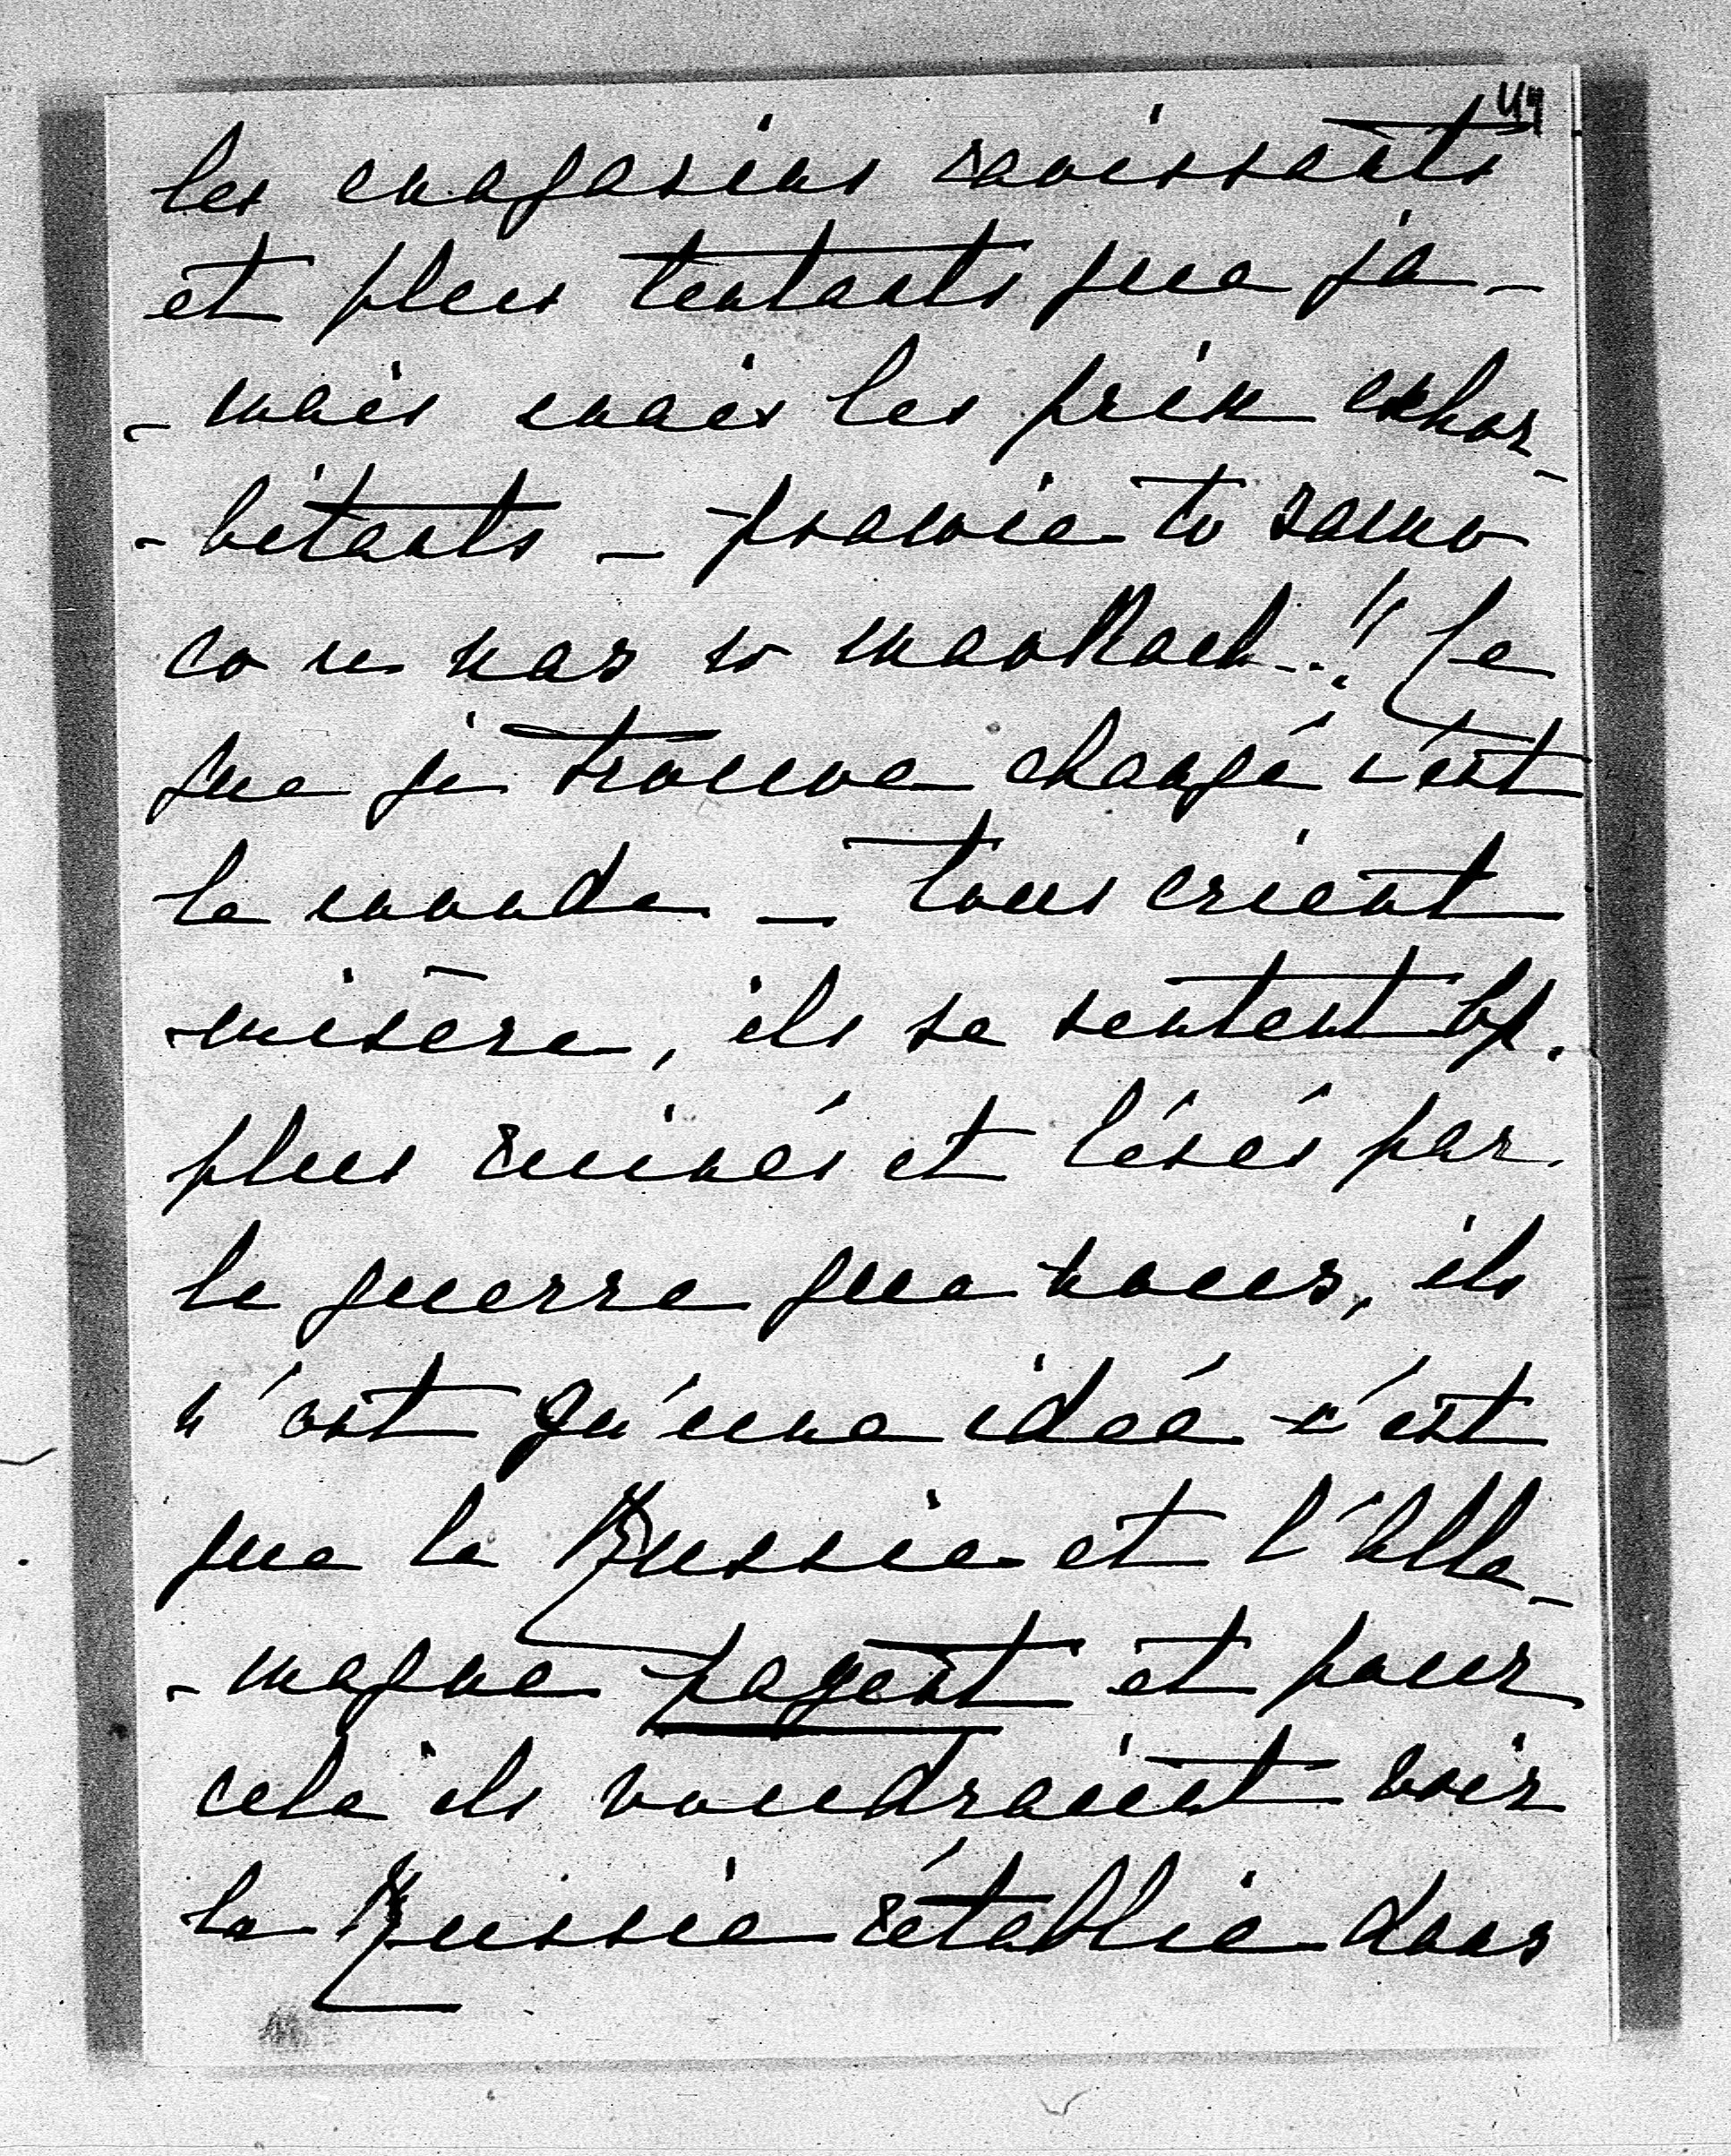 44
les magasins ravissants
et plus tentants que ja-
-mais mais les prix exhor-
-bitants - prawie to samo
co u nas w markach..! Ce
que je trouve changé c'est
le monde - tous crient
misère, ils se sentent bp.
plus ruinés et lésés par
la guerre que nous, ils
n'ont qu'une idée c'est
que la Russie et l'Alle-
-magne payent et pour
cela ils voudraient voir
la Russie rétablie dans